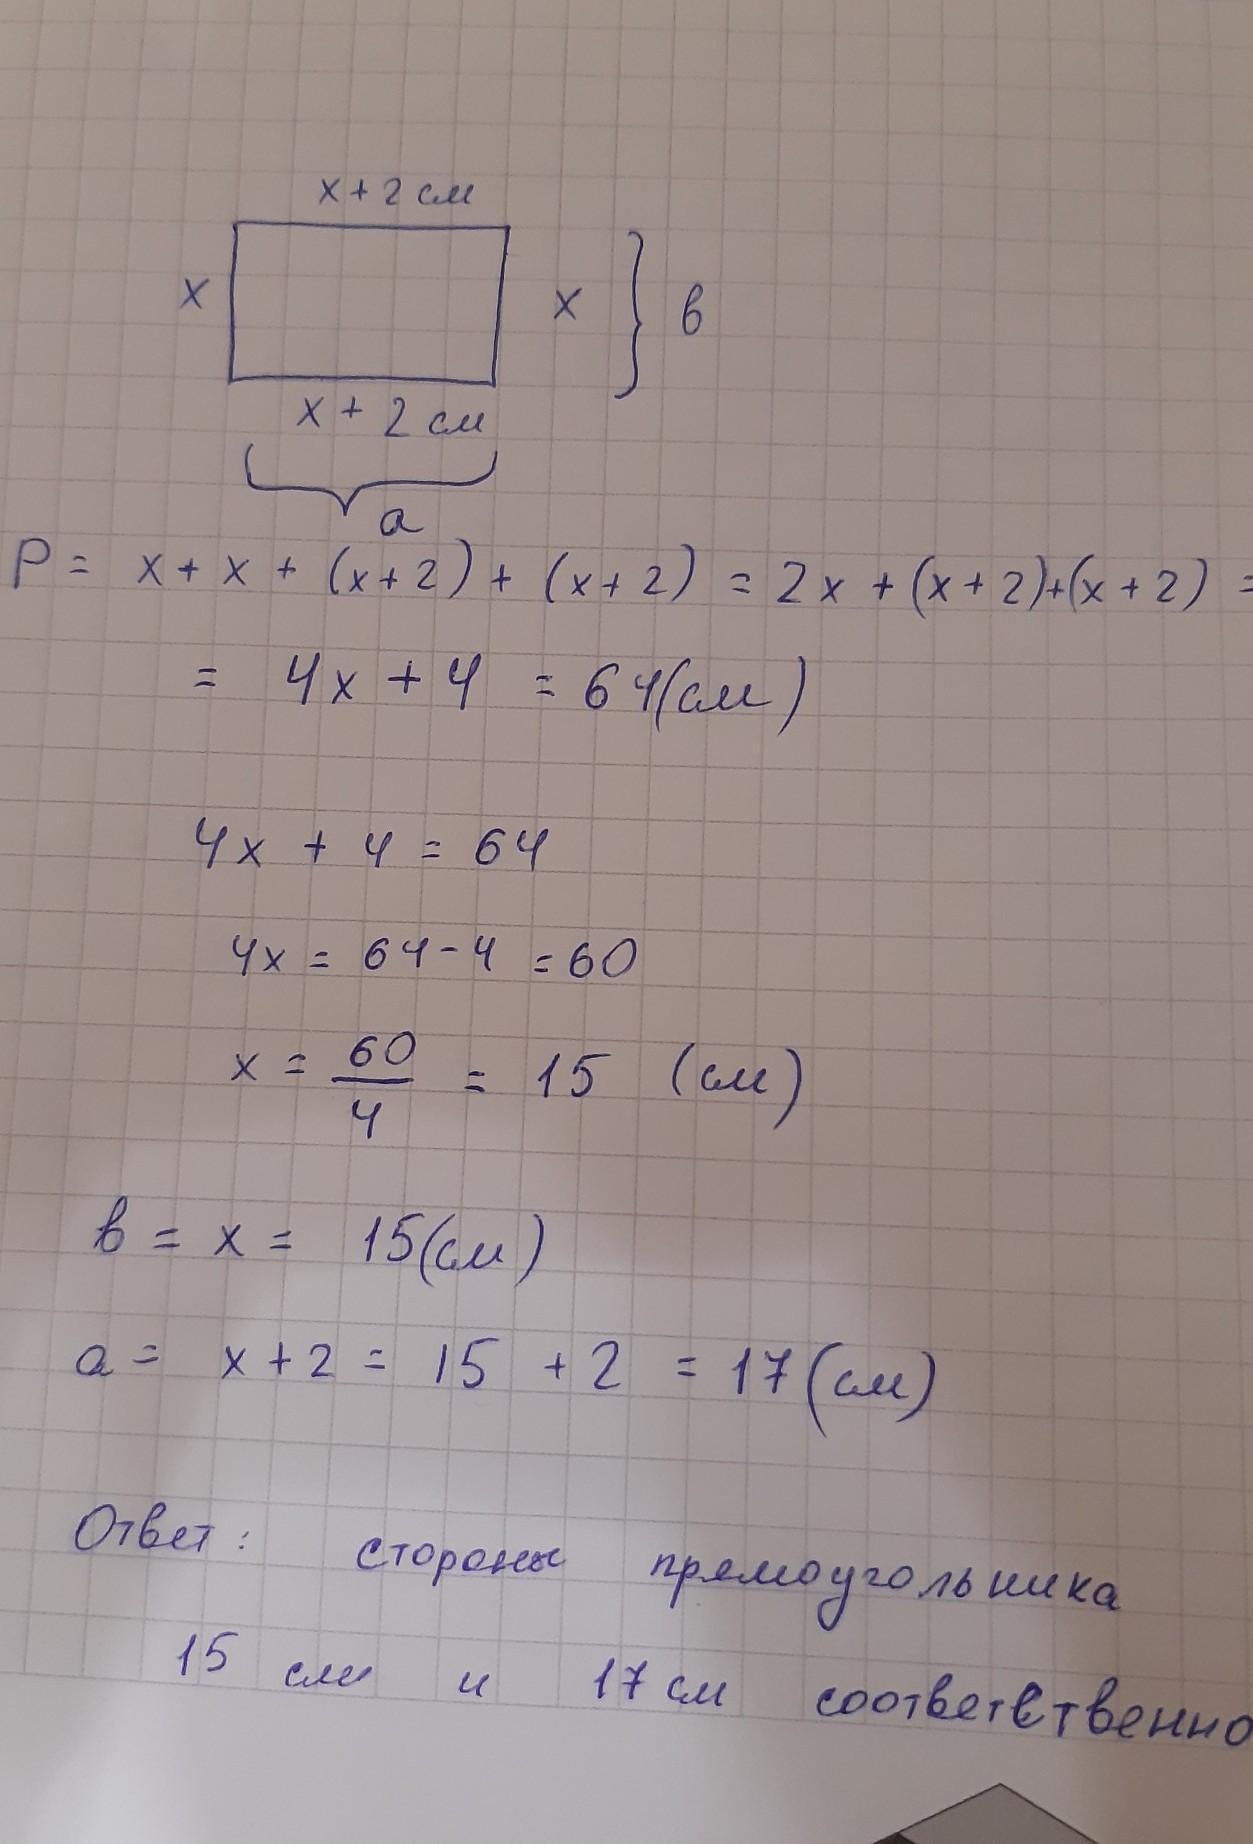 x + 2 см
x
x } в
x + 2 см
а
P = x + x + (x+2) + (x+2) = 2x + (x+2)+(x+2) =
= 4x + 4 = 64(см)
4x + 4 = 64
4x = 64-4 = 60
x = 60/4 = 15 (см)
в = x = 15(см)
а = x+2 = 15 + 2 = 17(см)
Ответ: стороны прямоугольника
15 см и 17 см соответственно